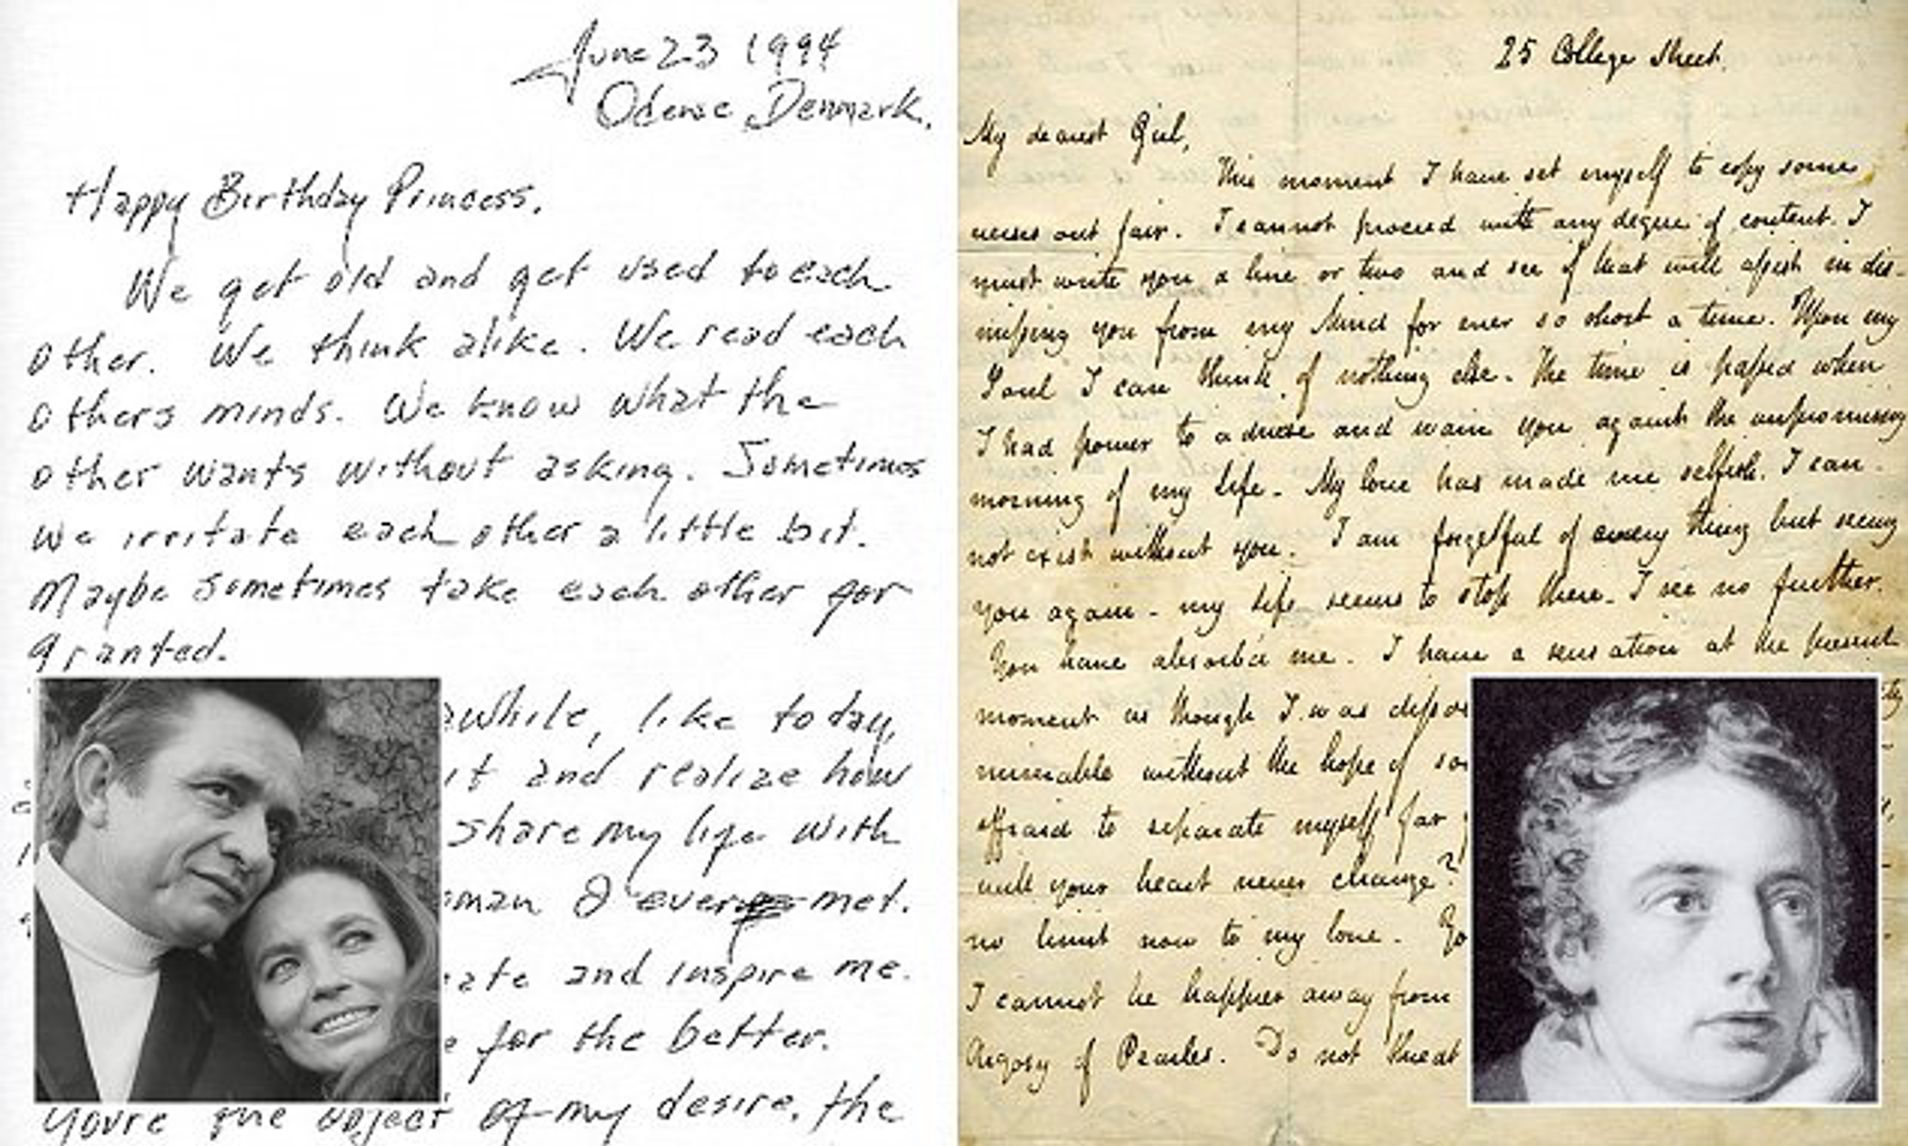 June 23 1994
Odense, Denmark.
Happy Birthday Princess.
We get old and get used to each
other. We think alike. We read each
others minds. We know what the
other wants without asking. Sometimes
we irritate each other a little bit.
Maybe sometimes take each other for
granted.
while, like today,
it and realize how
share my life with
man I ever met.
and inspire me.
for the better.
You're the object of my desire, the
25 College Street.
My dearest Girl,
This moment I have set myself to copy some
verses out fair. I cannot proceed with any degree of content. I
must write you a line or two and see if that will assist in dis-
missing you from my Mind for ever so short a time. Upon my
Soul I can think of nothing else. The time is passed when
I had power to advise and warn you against the unpromising
morning of my Life. My love has made me selfish. I can
not exist without you. I am forgetful of every thing but seeing
you again - my Life seems to stop there. I see no further.
You have absorb'd me. I have a sensation at the present
moment as though I was
miserable without the hope of
affraid to separate myself far
will your heart never change?
no limit now to my love.
I cannot be happier away from
Argosy of Pearles. Do not threat